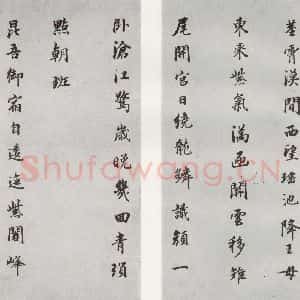 莖霄漢間西望瑤池降王母
東來紫氣滿函關雲移雉
尾開宮日繞龍鱗識顏一
臥滄江驚歲晚幾回青瑣
點朝班
昆吾御宿自逶迤紫閣峰
Shufawang.CN